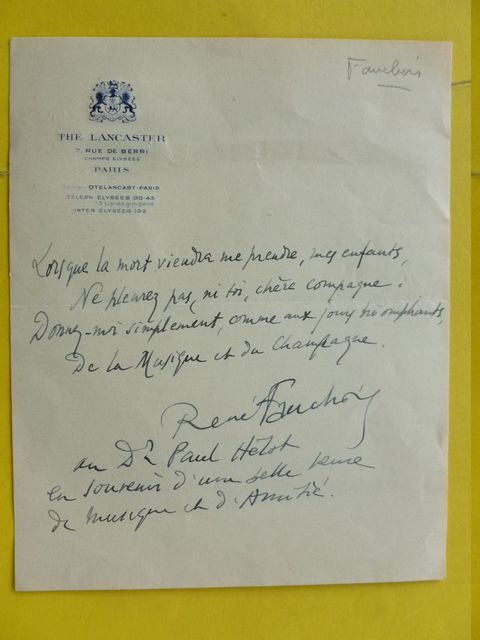 Fauchois
THE LANCASTER
7, RUE DE BERRI
CHAMPS ELYSÉES
PARIS
OTELANCAST-PARIS
TÉLÉPH. ÉLYSÉES 90-43
5 Lignes groupées
INTER ELYSÉES 192
Lorsque la mort viendra me prendre, mes enfants,
Ne pleurez pas, ni toi, chère compagne.
Donnez-moi simplement, comme aux jours triomphants,
De la Musique et du Champagne.
René Fauchois
au Dr Paul Hélot
en souvenir d'une belle
de musique et d'Amitié.